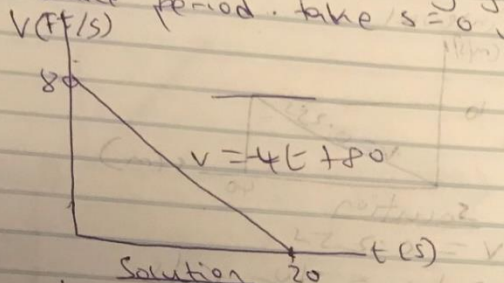 period. take s = 0
V(Ft/s)
80
v = -4t + 80
t (s)
20
Solution